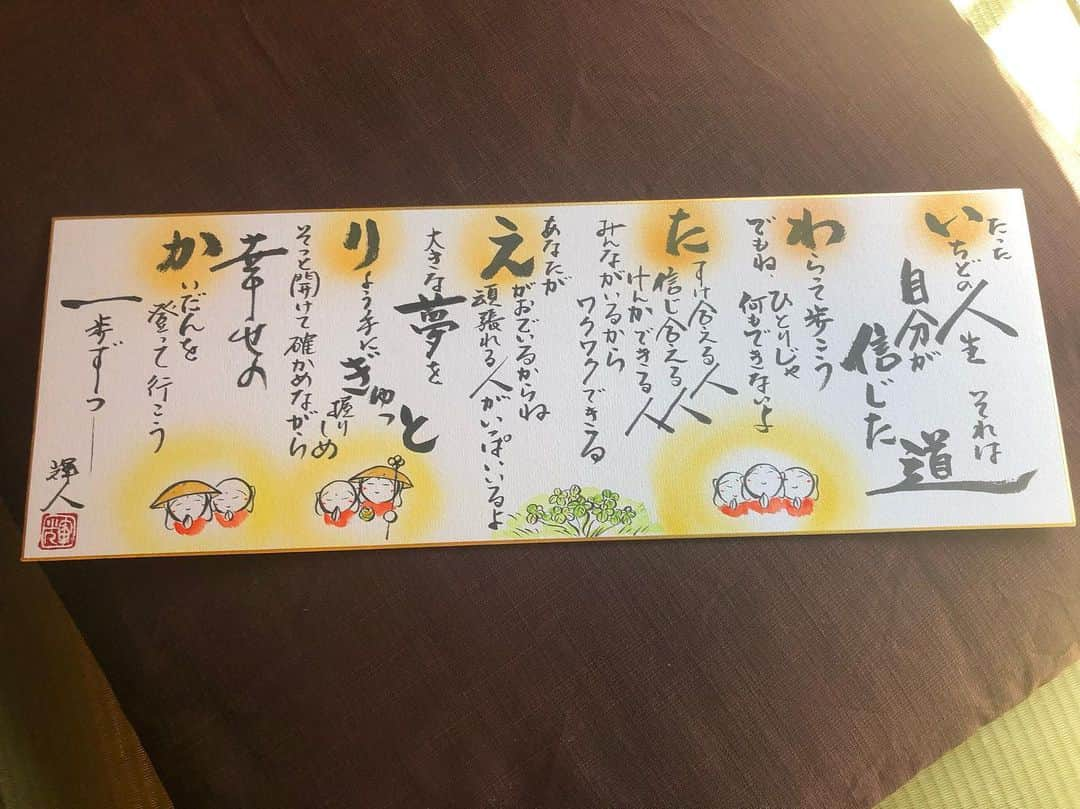 たった
いちどの人生 それは
自分が
信じた
道
わらって歩こう
でもね、ひとりじゃ
何もできないよ
たすけ合える人
信じ合える人
けんかできる人
みんながいるから
ワクワクできる
あなたが
えがおでいるからね
頑張れる人がいっぱいいるよ
大きな夢を
りょう手にぎゅっと
握りしめ
そっと開けて確かめながら
幸せの
かいだんを
登って行こう
一歩ずつ―
輝人